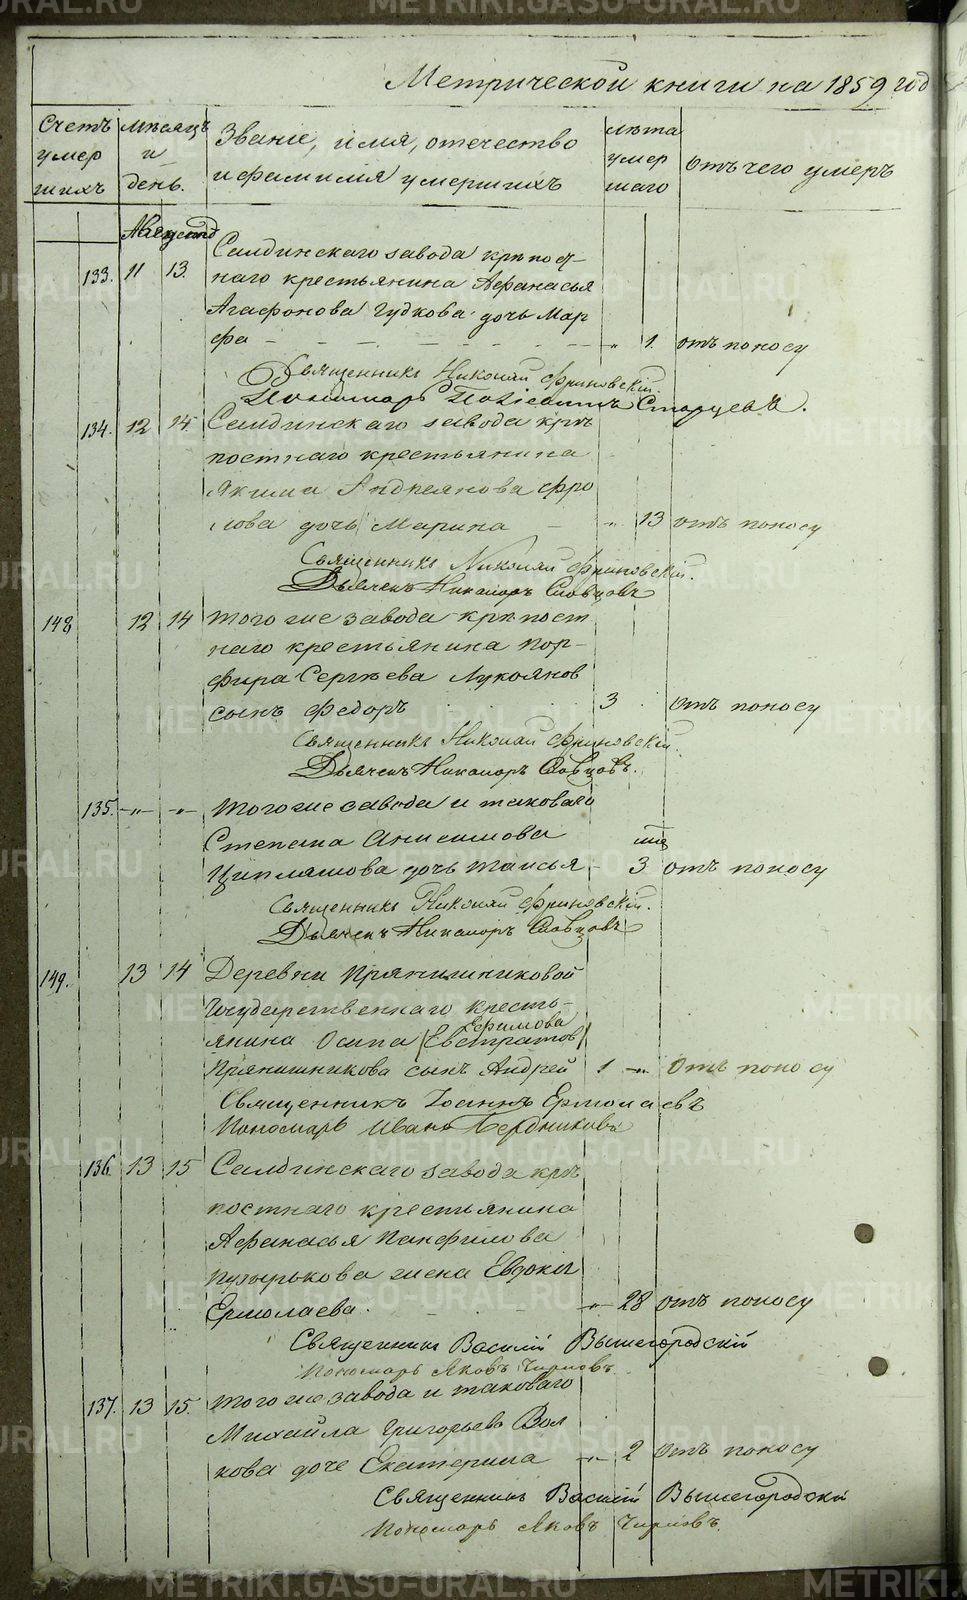 Метрической книги на 1859 год
Счетъ умершихъ
мѣсяцъ и день.
Званіе, имя, отечество и фамилія умершихъ
лѣта умершаго
отъ чего умеръ
Августъ
133. 11 13. Салдинскаго завода крѣпост-
наго крестьянина Афанасья
Агафонова Гудкова дочь Мар
фа - - - - - - - „ 1. отъ поносу
Священникъ Николай Фриновскій.
Пономарь Старцевъ.
134. 12 14 Салдинскаго завода крѣ
постнаго крестьянина
Якима Андреянова Фро
лова дочь Марина - „ 13 отъ поносу
Священникъ Николай Фриновскій.
Дьячекъ Никаноръ Словцовъ
148 12 14 того же завода крѣпост
наго крестьянина Пор-
фира Сергѣева Лукоянов
сынъ Федоръ 3 . отъ поносу
Священникъ Николай Фриновскій.
Дьячекъ Никаноръ Словцовъ.
135. -„- -„- того же завода и таковаго
Степана Анисимова
Циплятова дочь Таисья - 3 отъ поносу
Священникъ Николай Фриновскій.
Дьячекъ Никаноръ Словцовъ
149. 13 14 Деревни Прянишниковой
Государственнаго кресть-
Ефимова
янина Осипа (Евстратов)
Прянишникова сынъ Андрей 1 -„- отъ поносу
Священникъ Іоаннъ Ермолаевъ
Пономарь Иванъ Бердниковъ
136. 13 15 Салдинскаго завода крѣ
постнаго крестьянина
Афанасья Панфилова
Пузырькова жена Евдокія
Ермолаева. - - - „ 28 отъ поносу
Священникъ Василій Вышегородскій
Пономарь Яковъ Чирковъ
137. 13 15. того же завода и таковаго
Михайла Григорьевъ Вол
кова доче Екатерина -„- 2 отъ поносу
Священникъ Василій Вышегородскій
Пономарь Яковъ Чирковъ.
METRIKI.GASO-URAL.RU